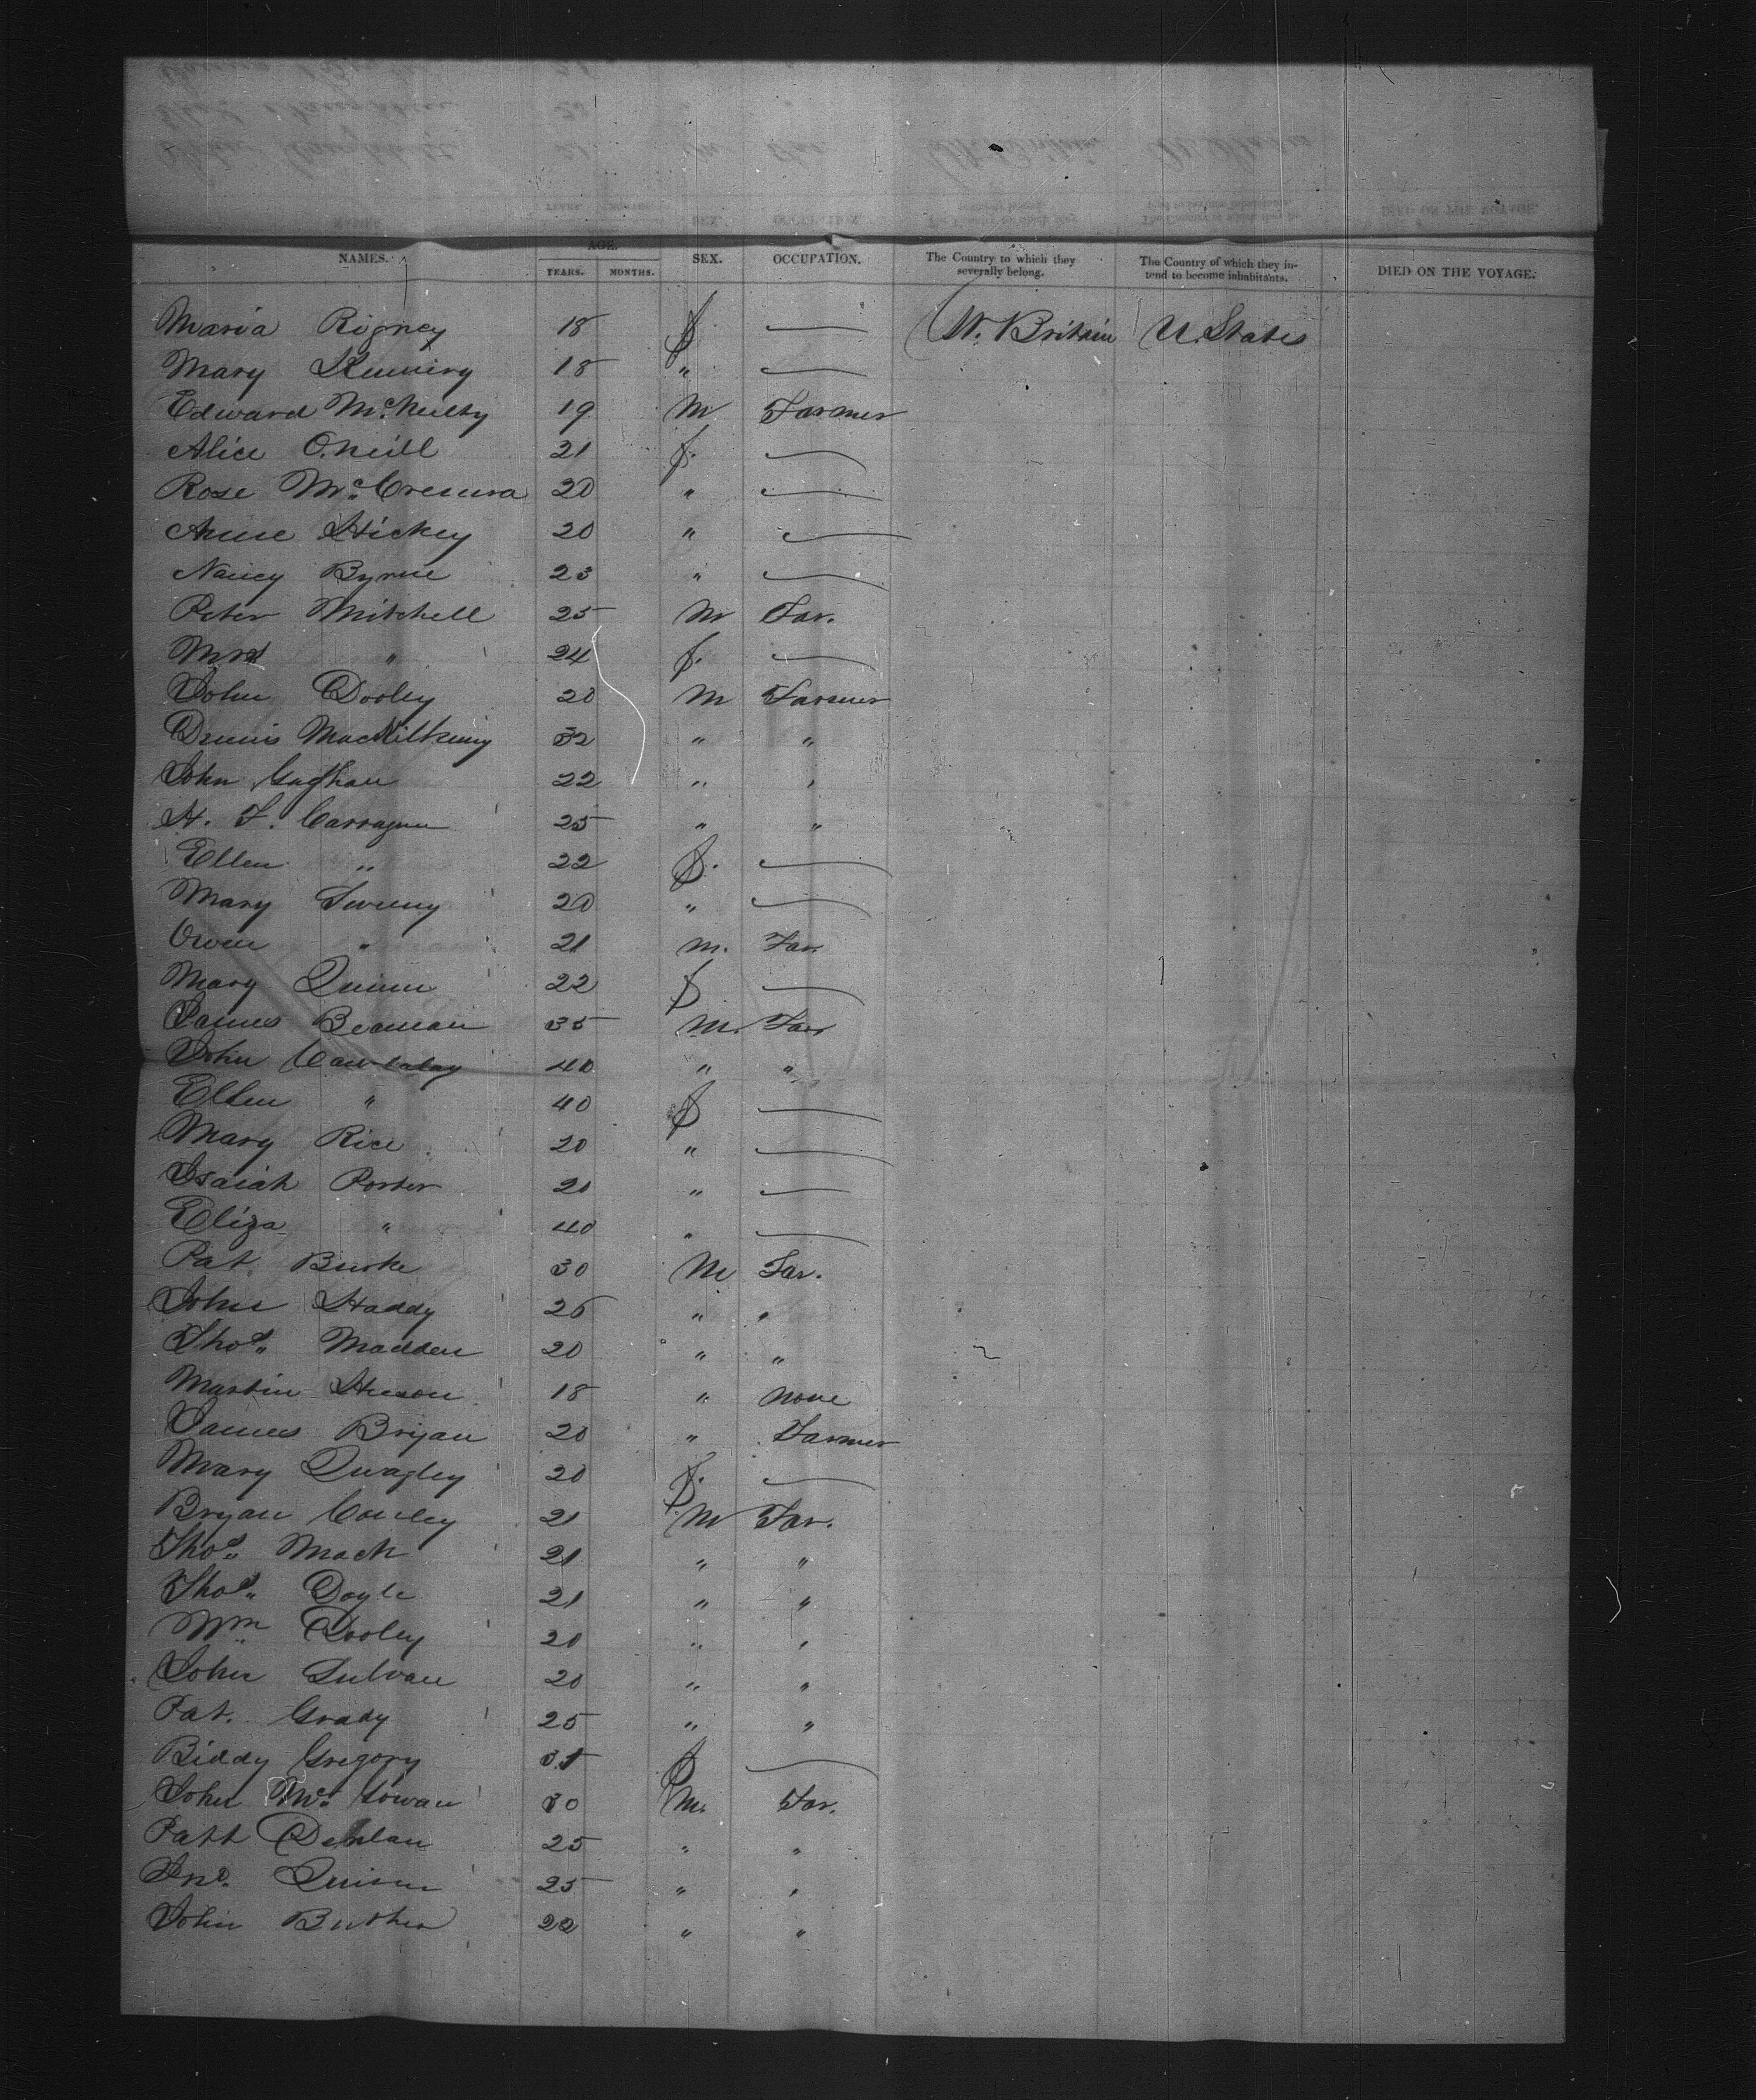 NAMES. AGE. YEARS. MONTHS. SEX. OCCUPATION. The Country to which they severally belong. The Country of which they intend to become inhabitants. DIED ON THE VOYAGE.
Maria Rigney 18 f — Britain U. States
Mary 18 " —
Edward McNulty 19 M Farmer
Alice O.Neill 21 f. —
Rose 20 " —
Anne Hickey 20 " —
Nancy Byrne 23 " —
Peter Mitchell 25 M Far.
Mrs " 24 f. —
John Dooley 20 M Farmer
Dennis 32 " "
John 22 " "
H. F. 25 " "
Ellen " 22 f. —
Mary Sweeny 20 " —
Owen " 21 M. Far.
Mary Quinn 22 f —
James Beaman 35 M. Far
John 40 " "
Ellen " 40 f —
Mary Rice 20 " —
Isaiah Porter 20 " —
Eliza " 40 " —
Pat. Burke 30 M Far.
John Haddy 26 " "
Thos. Madden 20 " "
Martin 18 " None
James Bryan 20 " Farmer
Mary Quagley 20 f. —
Bryan Conley 21 M Far.
Thos. Mack 21 " "
Thos. Doyle 21 " "
Wm Dooley 20 " "
John Sulvan 20 " "
Pat. Grady 25 " "
Biddy Gregory 31 f —
John Mc. Gowan 30 M. Far.
Patt 25 " "
Jno. Quinn 25 " "
John 22 " "